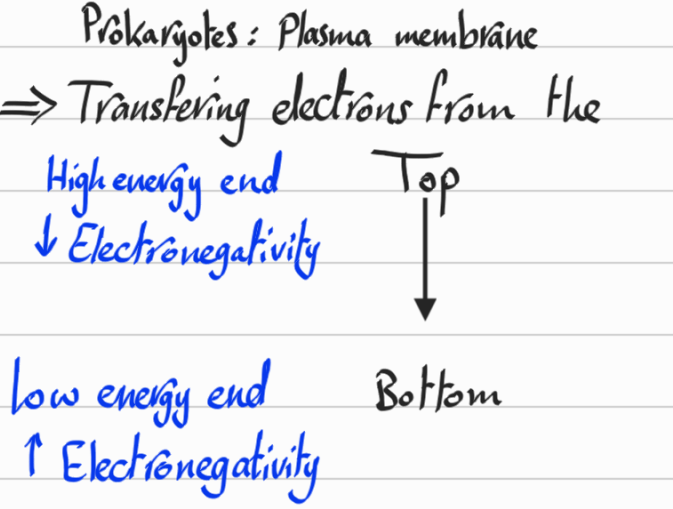 Prokaryotes: Plasma membrane
⇒ Transfering electrons from the
High energy end Top
↓ Electronegativity
Low energy end Bottom
↑ Electronegativity